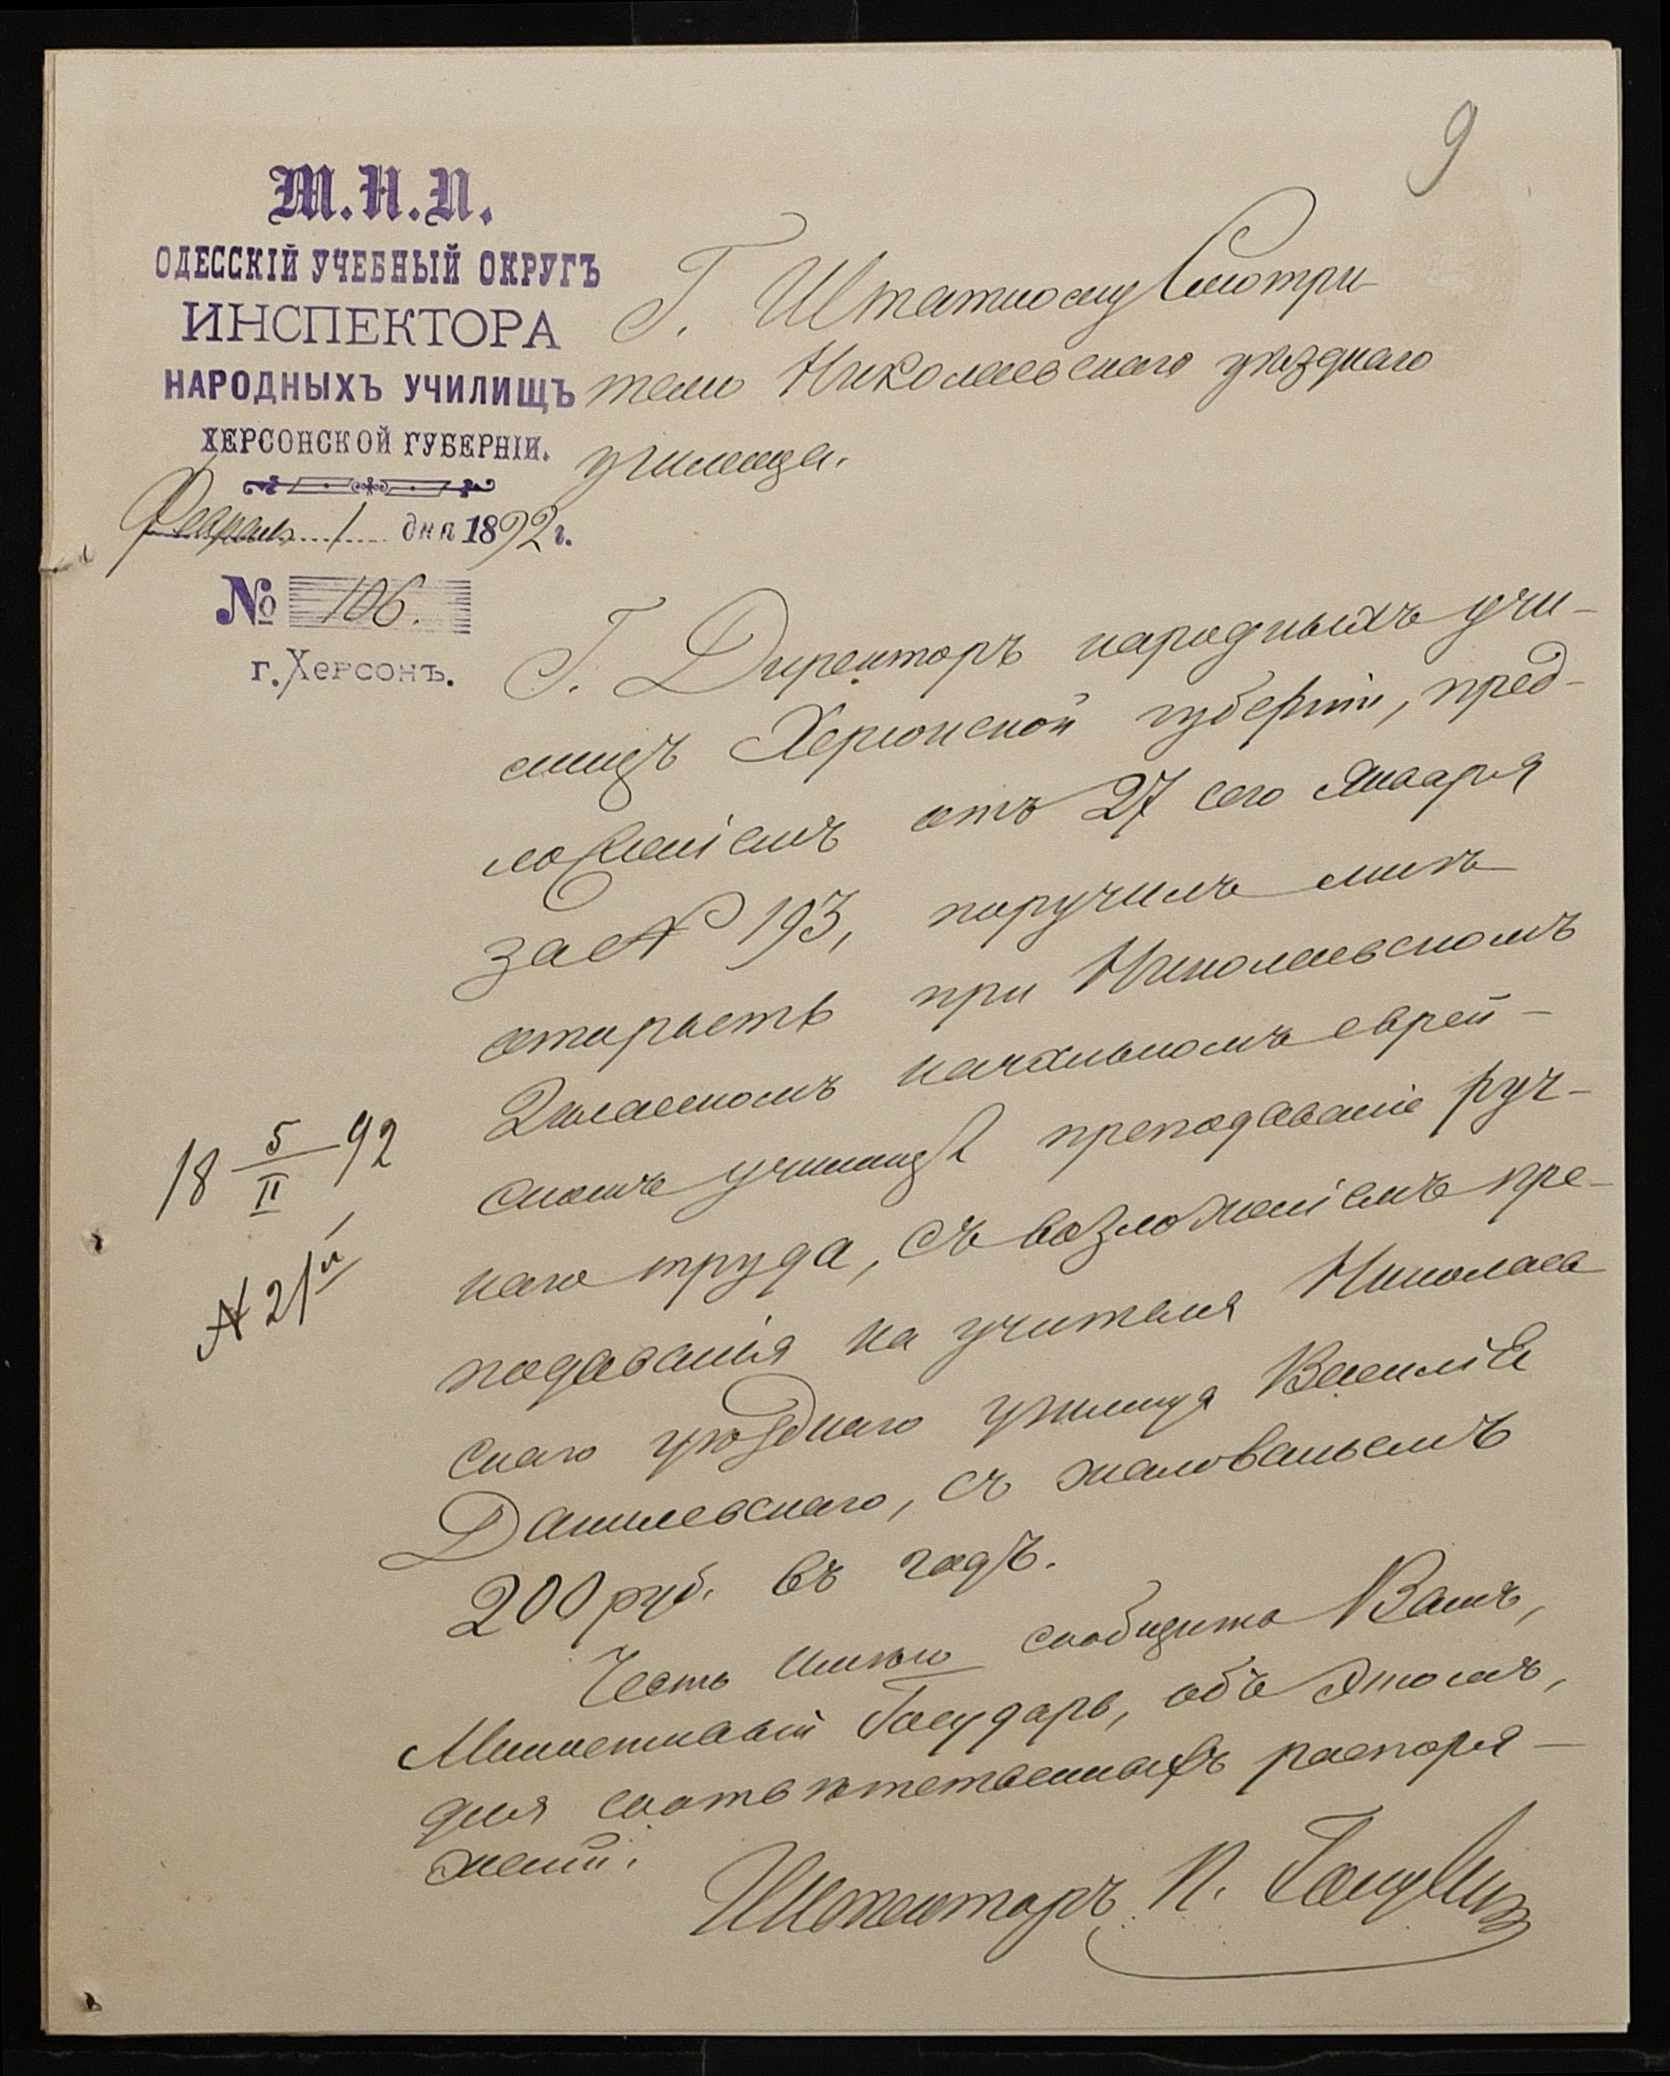 9
М.Н.П.
ОДЕССКІЙ УЧЕБНЫЙ ОКРУГЪ
ИНСПЕКТОРА
НАРОДНЫХЪ УЧИЛИЩЪ
ХЕРСОНСКОЙ ГУБЕРНІИ.
Февраль 1 дня 1892 г.
№ 106.
г. Херсонъ.
Г. Штатному Смотри-
телю Николаевскаго уѣзднаго
училища.
Г. Директоръ народныхъ учи-
лищъ Херсонской губерніи, пред-
ложеніемъ отъ 27 сего Января
за № 193, поручилъ мнѣ
открыть при Николаевскомъ
2хклассномъ начальномъ еврей-
скомъ училищѣ преподаваніе руч-
наго труда, съ возложеніемъ пре-
подаванія на учителя Николаев
скаго уѣзднаго училища Василія
Данилевскаго, съ жалованьемъ
200 руб. въ годъ.
Честь имѣю сообщить Вамъ,
Милостивый Государь, объ этомъ,
для соотвѣтственныхъ распоря-
женій.
Инспекторъ П.
18 5/II 92
№ 21й